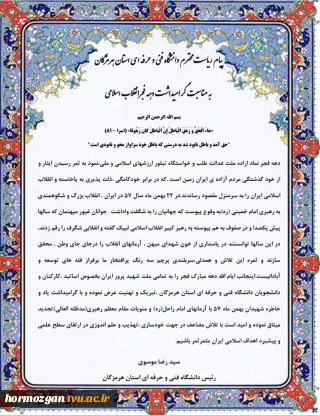 پیام ریاست محترم دانشگاه فنی و حرفه ای استان هرمزگان
به مناسبت گرامیداشت دهه فجر انقلاب اسلامی
بسم الله الرحمن الرحیم
«جاء الحق و زهق الباطل إن الباطل کان زهوقا» (اسرا -۸۱)
"حق آمد و باطل نابود شد به درستی که باطل خود سزاوار محو و نابودی است"
دهه فجر نماد اراده ملت عدالت طلب و خواستگاه تبلور ارزشهای اسلامی و ملی،نمود به ثمر رسیدن ایثار و
از خود گذشتگی مردم آزاده ی ایران زمین است .که در برابر خودکامگی ،ذلت پذیری به پاخاسته و انقلاب
اسلامی ایران را به سرمنزل مقصود رساندند.در ۲۲ بهمن ماه سال ۵۷ در ایران ، انقلاب بزرگ و شکوهمندی
به رهبری امام خمینی (ره)به وقوع پیوست که جهانیان را به شگفت واداشت . جوانان غیور میهنمان که سالها
پیش یکصدا و در صفوف به هم پیوسته به رهبر کبیر انقلاب اسلامی لبیک گفته و انقلابی شگرف را رقم زدند،
در این سالها توانستند در پاسداری از خون شهدای میهن ، آرمانهای انقلاب را درجای جای وطن ، محقق
سازند و ثمره این تلاش و همدلی،سربلندی پرچم سه رنگ پرافتخار ما برفراز قله های توسعه و
آبادانیست.اینجانب ایام الله دهه مبارک فجر را به تمامی ملت شهید پرور ایران بخصوص اساتید ،کارکنان و
دانشجویان دانشگاه فنی و حرفه ای استان هرمزگان ،تبریک و تهنیت عرض نموده و با گرامیداشت یاد و
خاطره شهیدان بهمن ماه ۵۷ با آرمانهای امام راحل(ره) و منویات مقام معظم رهبری(مدظله العالی)تجدید
میثاق نموده و امید است با تلاش مضاعف در جهت خودسازی ،تهذیب و علم اندوزی در ارتقای سطح علمی
و پیشبرد اهداف اسلامی ایران مثمر ثمر باشیم.
سید رضا موسوی
رئیس دانشگاه فنی و حرفه ای استان هرمزگان
hormozgan.tvu.ac.ir